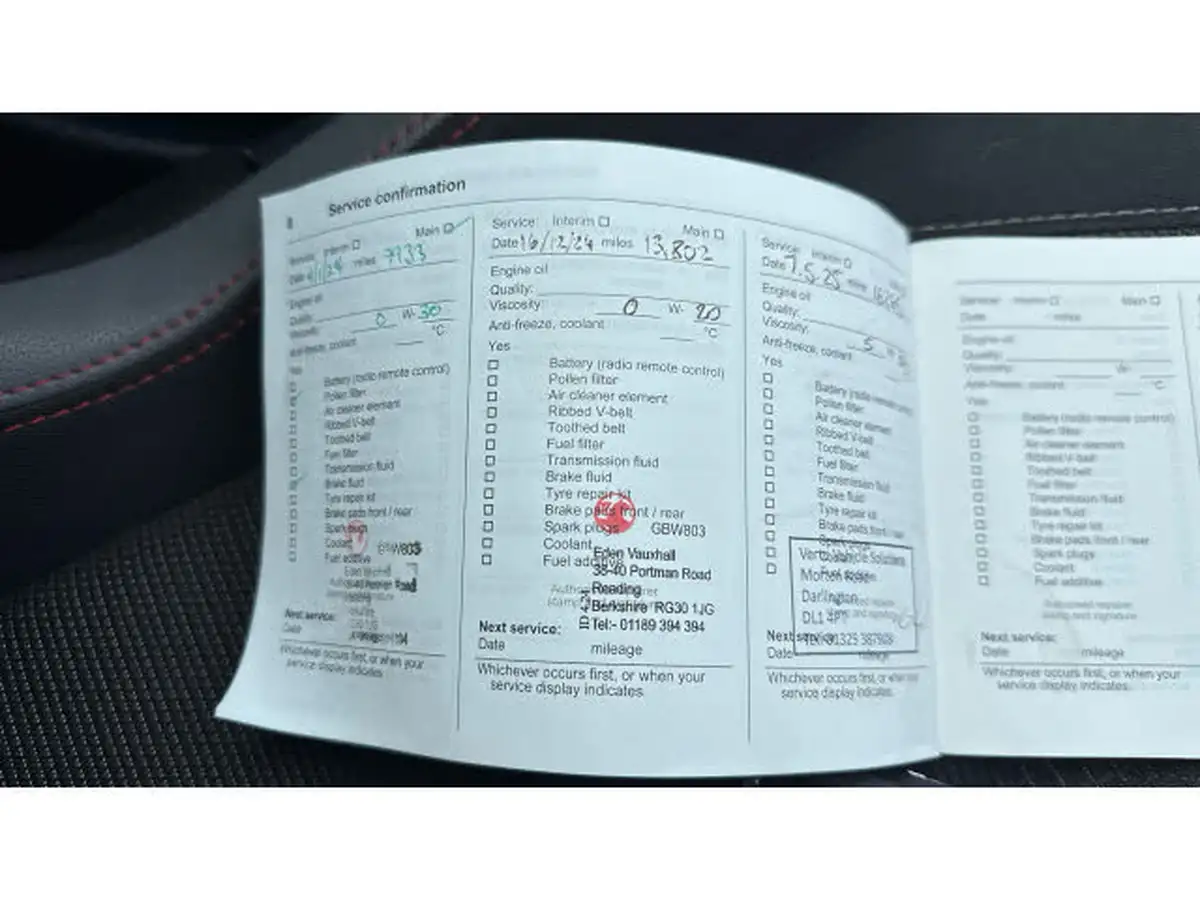 8 Service confirmation
Service: Interim Main
Date miles 7933
Engine oil
Quality:
Viscosity: 0 W- 30
Anti-freeze, coolant °C
Yes
Battery (radio remote control)
Pollen filter
Air cleaner element
Ribbed V-belt
Toothed belt
Fuel filter
Transmission fluid
Brake fluid
Tyre repair kit
Brake pads front / rear
Spark plugs
Coolant GBW803
Fuel additive
Next service:
Date
Whichever occurs first, or when your
service display indicates.
Service: Interim Main
Date 16/12/24 miles 13,802
Engine oil
Quality:
Viscosity: 0 W- 20
Anti-freeze, coolant °C
Yes
Battery (radio remote control)
Pollen filter
Air cleaner element
Ribbed V-belt
Toothed belt
Fuel filter
Transmission fluid
Brake fluid
Tyre repair kit
Brake pads front / rear
Spark plugs GBW803
Coolant
Fuel additive
Eden Vauxhall
38-40 Portman Road
Reading
Berkshire RG30 1JG
Tel:- 01189 394 394
Next service:
Date mileage
Whichever occurs first, or when your
service display indicates.
Service: Interim
Date 7.5.25 miles
Engine oil
Quality:
Viscosity: 5
Anti-freeze, coolant
Yes
Battery (radio remote
Pollen filter
Air cleaner element
Ribbed V-belt
Toothed belt
Fuel filter
Transmission fluid
Brake fluid
Tyre repair kit
Brake pads front /
Spark plugs
Vehicle Solutions
Morton
Darlington
DL1 4P
01325
Next service:
Date mileage
Whichever occurs first, or when
service display indicates.
Service: Interim Main
Date miles
Engine oil
Quality:
Viscosity: W-
Anti-freeze, coolant °C
Yes
Battery (radio remote control)
Pollen filter
Air cleaner element
Ribbed V-belt
Toothed belt
Fuel filter
Transmission fluid
Brake fluid
Tyre repair kit
Brake pads front / rear
Spark plugs
Coolant
Fuel additive
Authorised repairer
stamp and signature
Next service:
Date mileage
Whichever occurs first, or when your
service display indicates.